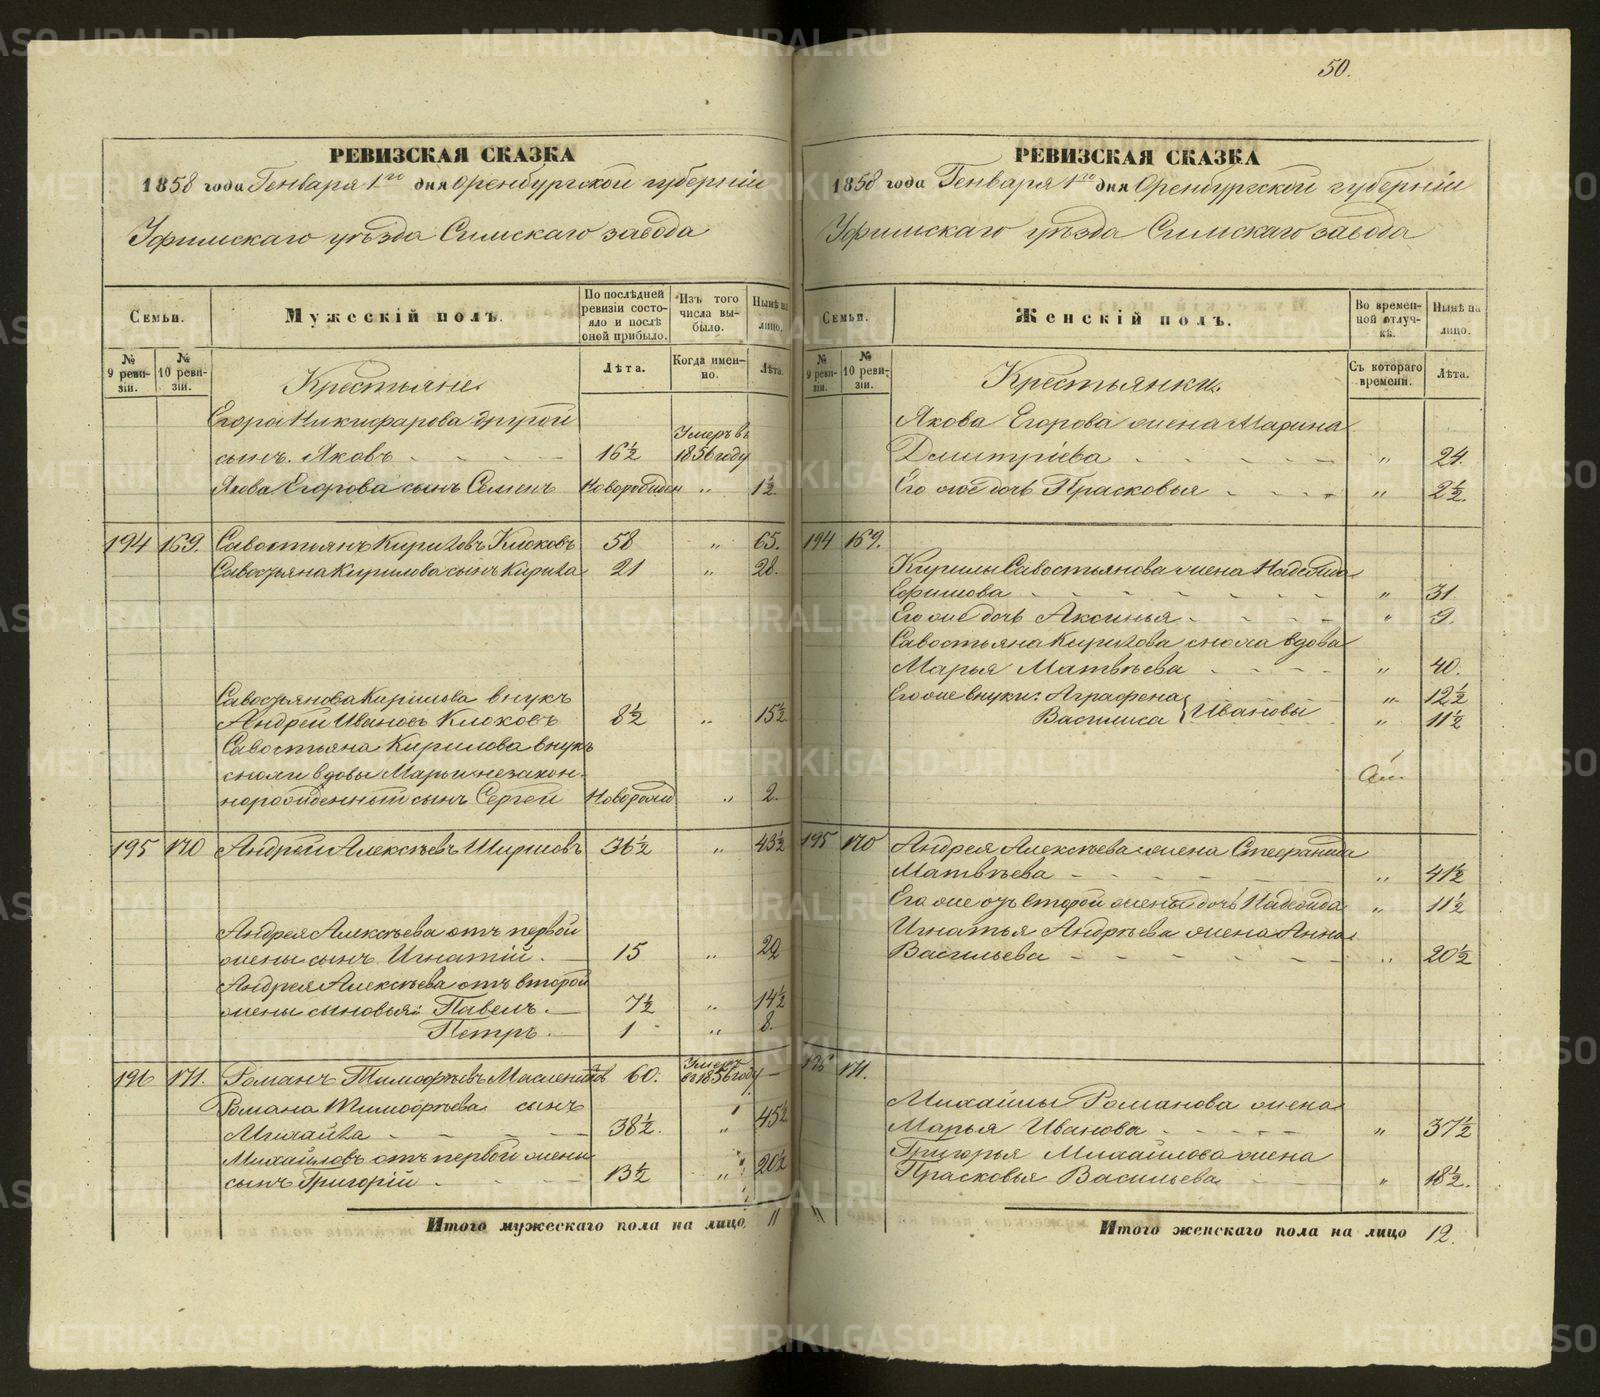 50.
РЕВИЗСКАЯ СКАЗКА
1858 года Генваря 1го дня Оренбургской губерніи
Уфимскаго уѣзда Симскаго завода
Семьи.
Мужескій полъ.
По послѣдней ревизіи состояло и послѣ оной прибыло.
Изъ того числа выбыло.
Нынѣ на лицо.
№ 9 ревизіи.
№ 10 ревизіи.
Крестьяне
Лѣта.
Когда именно.
Лѣта.
Егора Никифарова другой
сынъ. Яковъ 16½ Умеръ въ 1856 году
Якова Егорова сынъ Семенъ Новорожден „ 1½
194 169. Савостьянъ Кириловъ Клоковъ 58 „ 65.
Савостьяна Кирилова сынъ Кирила 21 „ 28.
Савостьянова Кирилова внукъ
Андрей Ивановъ Клоковъ 8½ „ 15½
Савостьяна Кирилова внукъ
снохи вдовы Марьи незакон-
норожденный сынъ Сергей Новорожд „ 2.
195 170 Андрей Алексѣевъ Ширшовъ 36½ „ 43½
Андрея Алексѣева отъ первой
жены сынъ Игнатій. 15 „ 22
Андрея Алексѣева отъ второй
жены сыновья: Павелъ. 7½ „ 14½
Петръ. 1 „ 8.
196 171. Романъ Тимофѣевъ Маслениковъ 60. Умеръ въ 1856 году —
Романа Тимофѣева сынъ
Михайла 38½. „ 45½
Михайловъ отъ первой жены
сынъ Григорій 13½ „ 20½
Итого мужескаго пола на лицо 11
РЕВИЗСКАЯ СКАЗКА
1858 года Генваря 1го дня Оренбургской губерніи
Уфимскаго уѣзда Симскаго завода
Семьи.
Женскій полъ.
Во временной отлучкѣ.
Нынѣ на лицо.
№ 9 ревизіи.
№ 10 ревизіи.
Крестьянки.
Съ котораго времени.
Лѣта.
Якова Егорова жена Марина
Дмитріева „ 24.
Его же дочь Прасковья „ 2½.
194 169.
Кирилы Савостьянова жена Надежда
Ефимова „ 31.
Его же дочь Аксинья „ 9.
Савостьяна Кирилова сноха вдова
Марья Матвѣева „ 40.
Его же внуки: Аграфена „ 12½
Василиса } Ивановы „ 11½
195 170 Андрея Алексѣева жена Степанида
Матвѣева „ 41½
Его же отъ второй жены дочь Надежда „ 11½
Игнатья Андрѣева жена Анна
Васильева „ 20½
196 171.
Михайлы Романова жена
Марья Иванова „ 37½
Григорья Михайлова жена
Прасковья Васильева „ 18½.
Итого женскаго пола на лицо 12.
METRIKI.GASO-URAL.RU